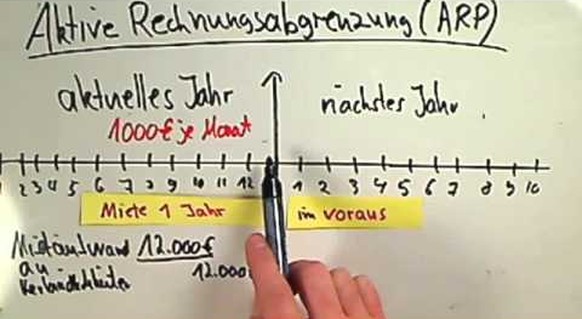 Aktive Rechnungsabgrenzung (ARP)
aktuelles Jahr nächstes Jahr
1000€ je Monat
2 3 4 5 6 7 8 9 10 11 12 1 2 3 4 5 6 7 8 9 10
Miete 1 Jahr im voraus
Mietaufwand 12.000€
an 12.000